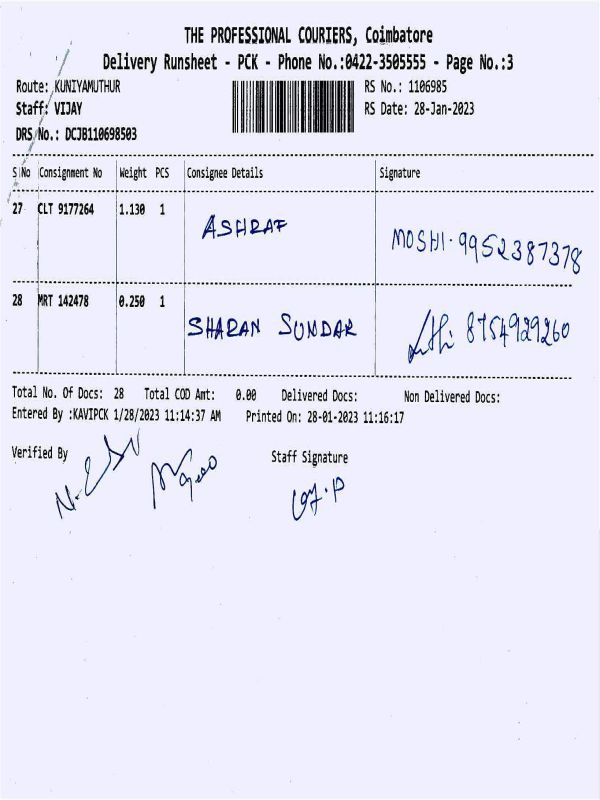 THE PROFESSIONAL COURIERS, Coimbatore
Delivery Runsheet - PCK - Phone No.:0422-3505555 - Page No.:3
Route: KUNIYAMUTHUR RS No.: 1106985
Staff: VIJAY RS Date: 28-Jan-2023
DRS No.: DCJB110698503
S No Consignment No Weight PCS Consignee Details Signature
27 CLT 9177264 1.130 1 ASHRAF MOSHI. 9952387378
28 MRT 142478 0.250 1 SHARAN SUNDAR 8754929260
Total No. Of Docs: 28 Total COD Amt: 0.00 Delivered Docs: Non Delivered Docs:
Entered By :KAVIPCK 1/28/2023 11:14:37 AM Printed On: 28-01-2023 11:16:17
Verified By Staff Signature